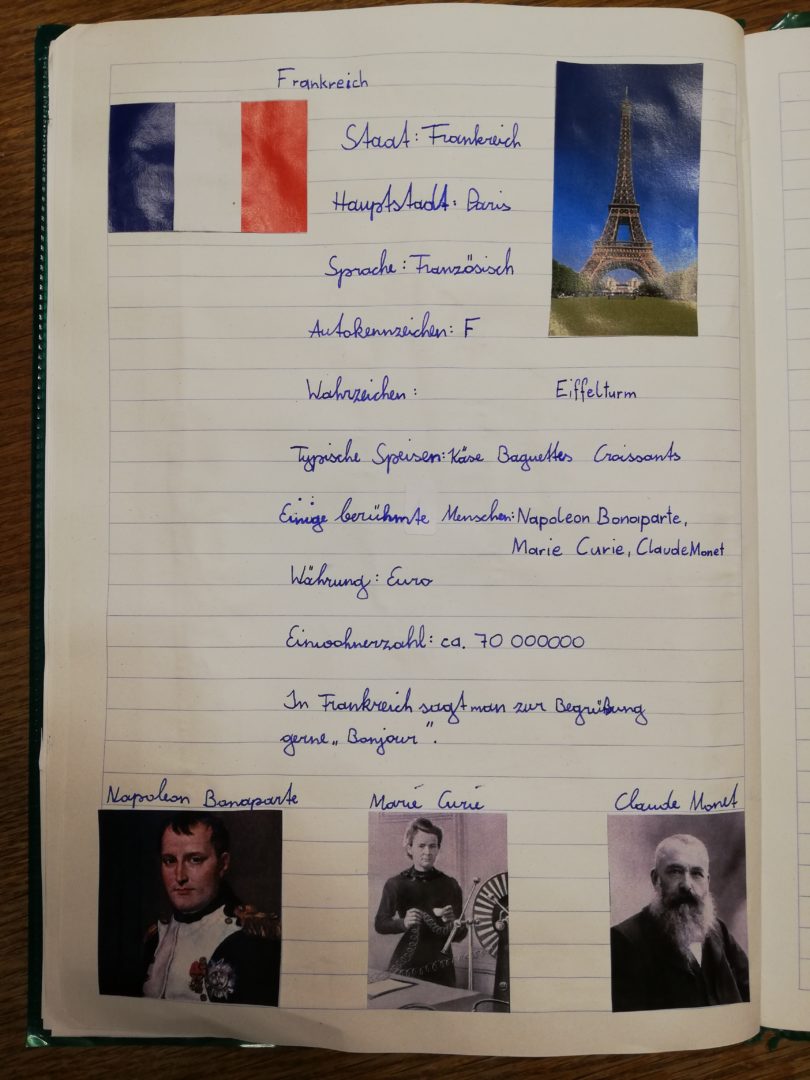 Frankreich
Staat: Frankreich
Hauptstadt: Paris
Sprache: Französisch
Autokennzeichen: F
Wahrzeichen: Eiffelturm
Typische Speisen: Käse Baguettes Croissants
Einige berühmte Menschen: Napoleon Bonaparte,
Marie Curie, Claude Monet
Währung: Euro
Einwohnerzahl: ca. 70 000000
In Frankreich sagt man zur Begrüßung
gerne „Bonjour".
Napoleon Bonaparte Marie Curie Claude Monet